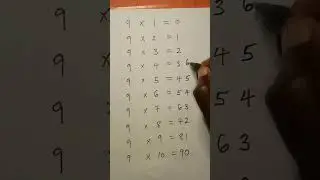 9 x 1 = 0
9 x 2 = 1
9 x 3 = 2
9 x 4 = 3 6
9 x 5 = 4 5
9 x 6 = 5 4
9 x 7 = 6 3
9 x 8 = 7 2
9 x 9 = 8 1
9 x 10 = 9 0